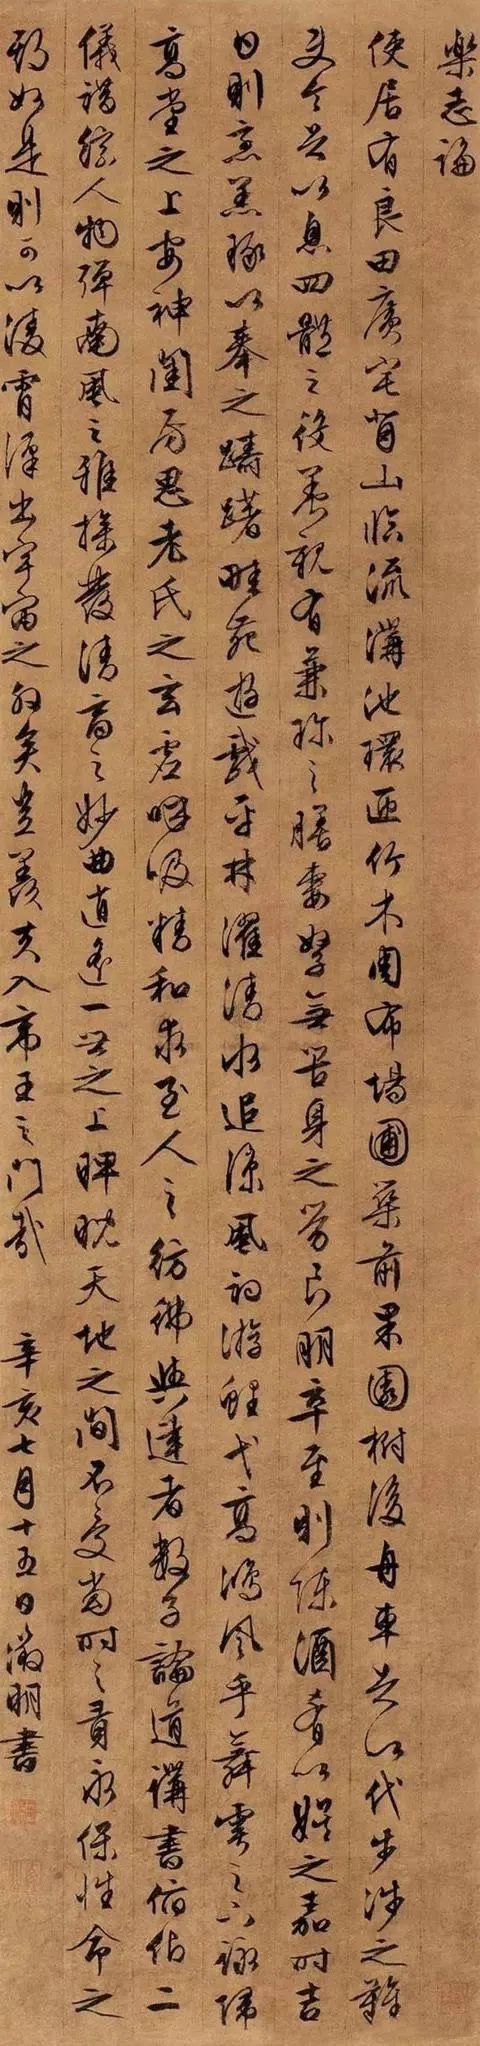 樂志論
使居有良田廣宅背山臨流溝池環匝竹木周布場圃築前果園樹後舟車足以代步涉之難
使令足以息四體之役養親有兼珍之膳妻孥無苦身之勞良朋萃至則陳酒肴以娛之嘉時吉
日則烹羔豚以奉之躊躇畦苑遊戲平林濯清水追涼風釣游鯉弋高鴻風乎舞雩之下詠歸
高堂之上安神閨房思老氏之玄虛呼吸精和求至人之彷彿與達者數子論道講書俯仰二
儀錯綜人物彈南風之雅操發清商之妙曲逍遙一世之上睥睨天地之間不受當時之責永保性命之
期如是則可以凌霄漢出宇宙之外矣豈羨夫入帝王之門哉 辛亥七月十五日徵明書